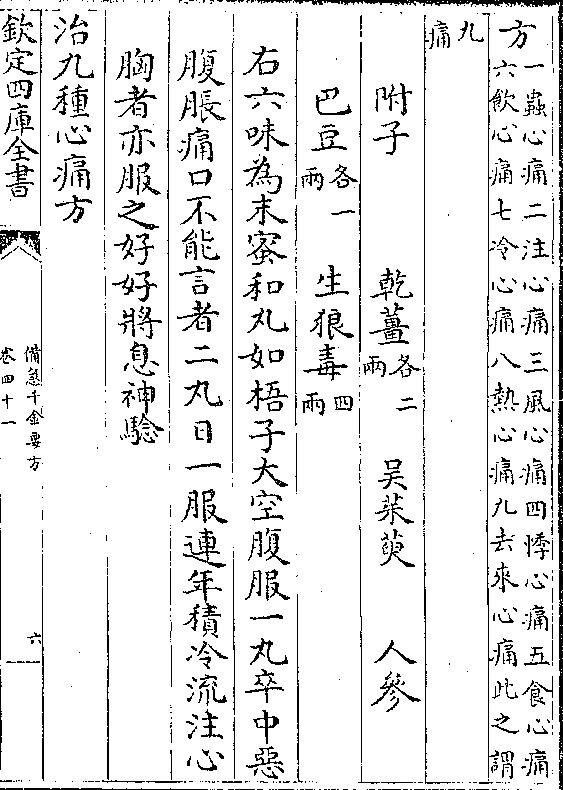 方一蟲心痛二注心痛三風心痛四悸心痛五食心痛
六飲心痛七冷心痛八熱心痛九去來心痛此之謂
九
痛
附子　乾薑各二兩　吴茱萸　人參
巴豆各一兩　生狼毒四兩
右六味為末蜜和丸如梧子大空腹服一丸卒中惡
腹脹痛口不能言者二丸日一服連年積冷流注心
胸者亦服之好好將息神驗
治九種心痛方
欽定四庫全書
備急千金要方
卷四十一
六